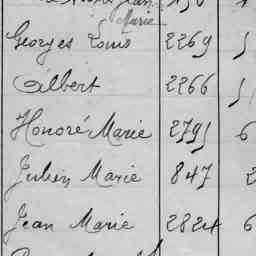 Jean
Marie
Georges Louis 2269
Albert 2266
Honoré Marie 2791 6
Julien Marie 847 2
Jean Marie 2824 6